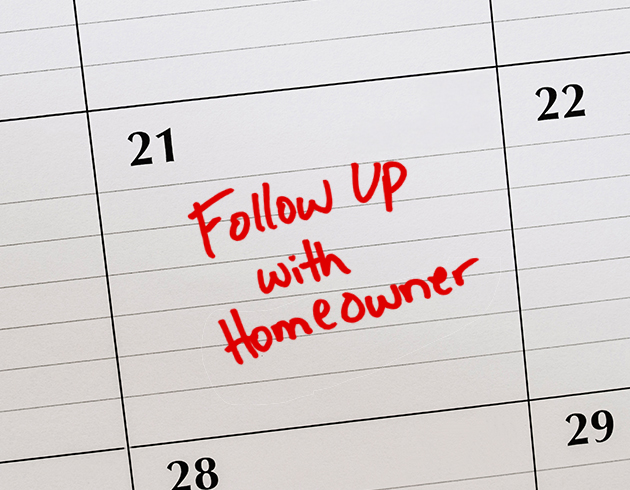 21
22
Follow Up
with
Homeowner
28
29